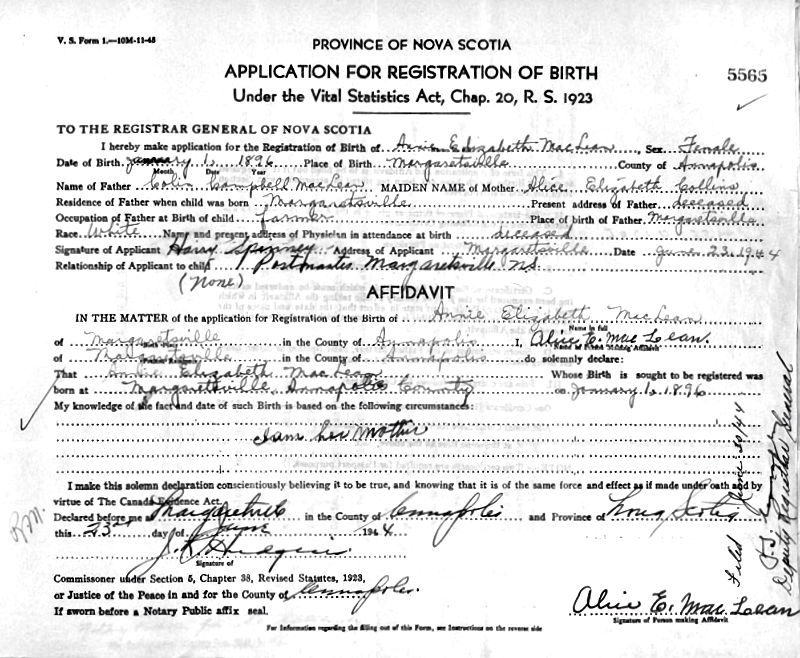 V. S. Form 1.—10M-11-43
PROVINCE OF NOVA SCOTIA
APPLICATION FOR REGISTRATION OF BIRTH
5565
Under the Vital Statistics Act, Chap. 20, R. S. 1923
TO THE REGISTRAR GENERAL OF NOVA SCOTIA
I hereby make application for the Registration of Birth of Annie Elizabeth MacLean, Sex Female
Date of Birth January 1, 1896 Place of Birth Margaretsville County of Annapolis
Month Date Year
Name of Father Colin Campbell MacLean MAIDEN NAME of Mother Alice Elizabeth Collins
Residence of Father when child was born Margaretsville Present address of Father deceased
Occupation of Father at Birth of child farmer Place of birth of Father Margaretsville
Race White Name and present address of Physician in attendance at birth deceased
Signature of Applicant Harry Spinney Address of Applicant Margaretsville Date June 23, 1944
Relationship of Applicant to child Postmaster Margaretsville NS
(None)
AFFIDAVIT
IN THE MATTER of the application for Registration of the Birth of Annie Elizabeth MacLean
Name in full
of Margaretsville in the County of Annapolis I, Alice E. MacLean.
Name of Person Making Affidavit
of Margaretsville in the County of Annapolis do solemnly declare:
That Annie Elizabeth MacLean Whose Birth is sought to be registered was
born at Margaretsville, Annapolis County on January 1, 1896
My knowledge of the fact and date of such Birth is based on the following circumstances:
I am her mother
I make this solemn declaration conscientiously believing it to be true, and knowing that it is of the same force and effect as if made under oath and by
virtue of The Canada Evidence Act.
Declared before me Margaretsville in the County of Annapolis and Province of Nova Scotia
this 23rd day of June 1944
Signature of
Commissioner under Section 5, Chapter 38, Revised Statutes, 1923,
or Justice of the Peace in and for the County of Annapolis.
If sworn before a Notary Public affix seal.
Alice E. MacLean
Signature of Person making Affidavit
For Information regarding the filling out of this Form, see Instructions on the reverse side
R.M.
Filed June 30/44
Deputy Registrar General